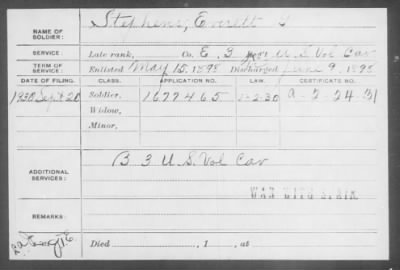 NAME OF SOLDIER: Stephens, Everett
SERVICE: Late rank, Co. E, 3 U.S. Vol Cav
TERM OF SERVICE: Enlisted May 15, 1898 Discharged June 9, 1898
DATE OF FILING. CLASS. APPLICATION NO. LAW. CERTIFICATE NO.
1930 Sept 20 Soldier, 1677465 6-2-30 A-2-24-31
Widow,
Minor,
ADDITIONAL SERVICES: B 3 U.S. Vol Cav
WAR WITH SPAIN
REMARKS:
Died , 1 , at